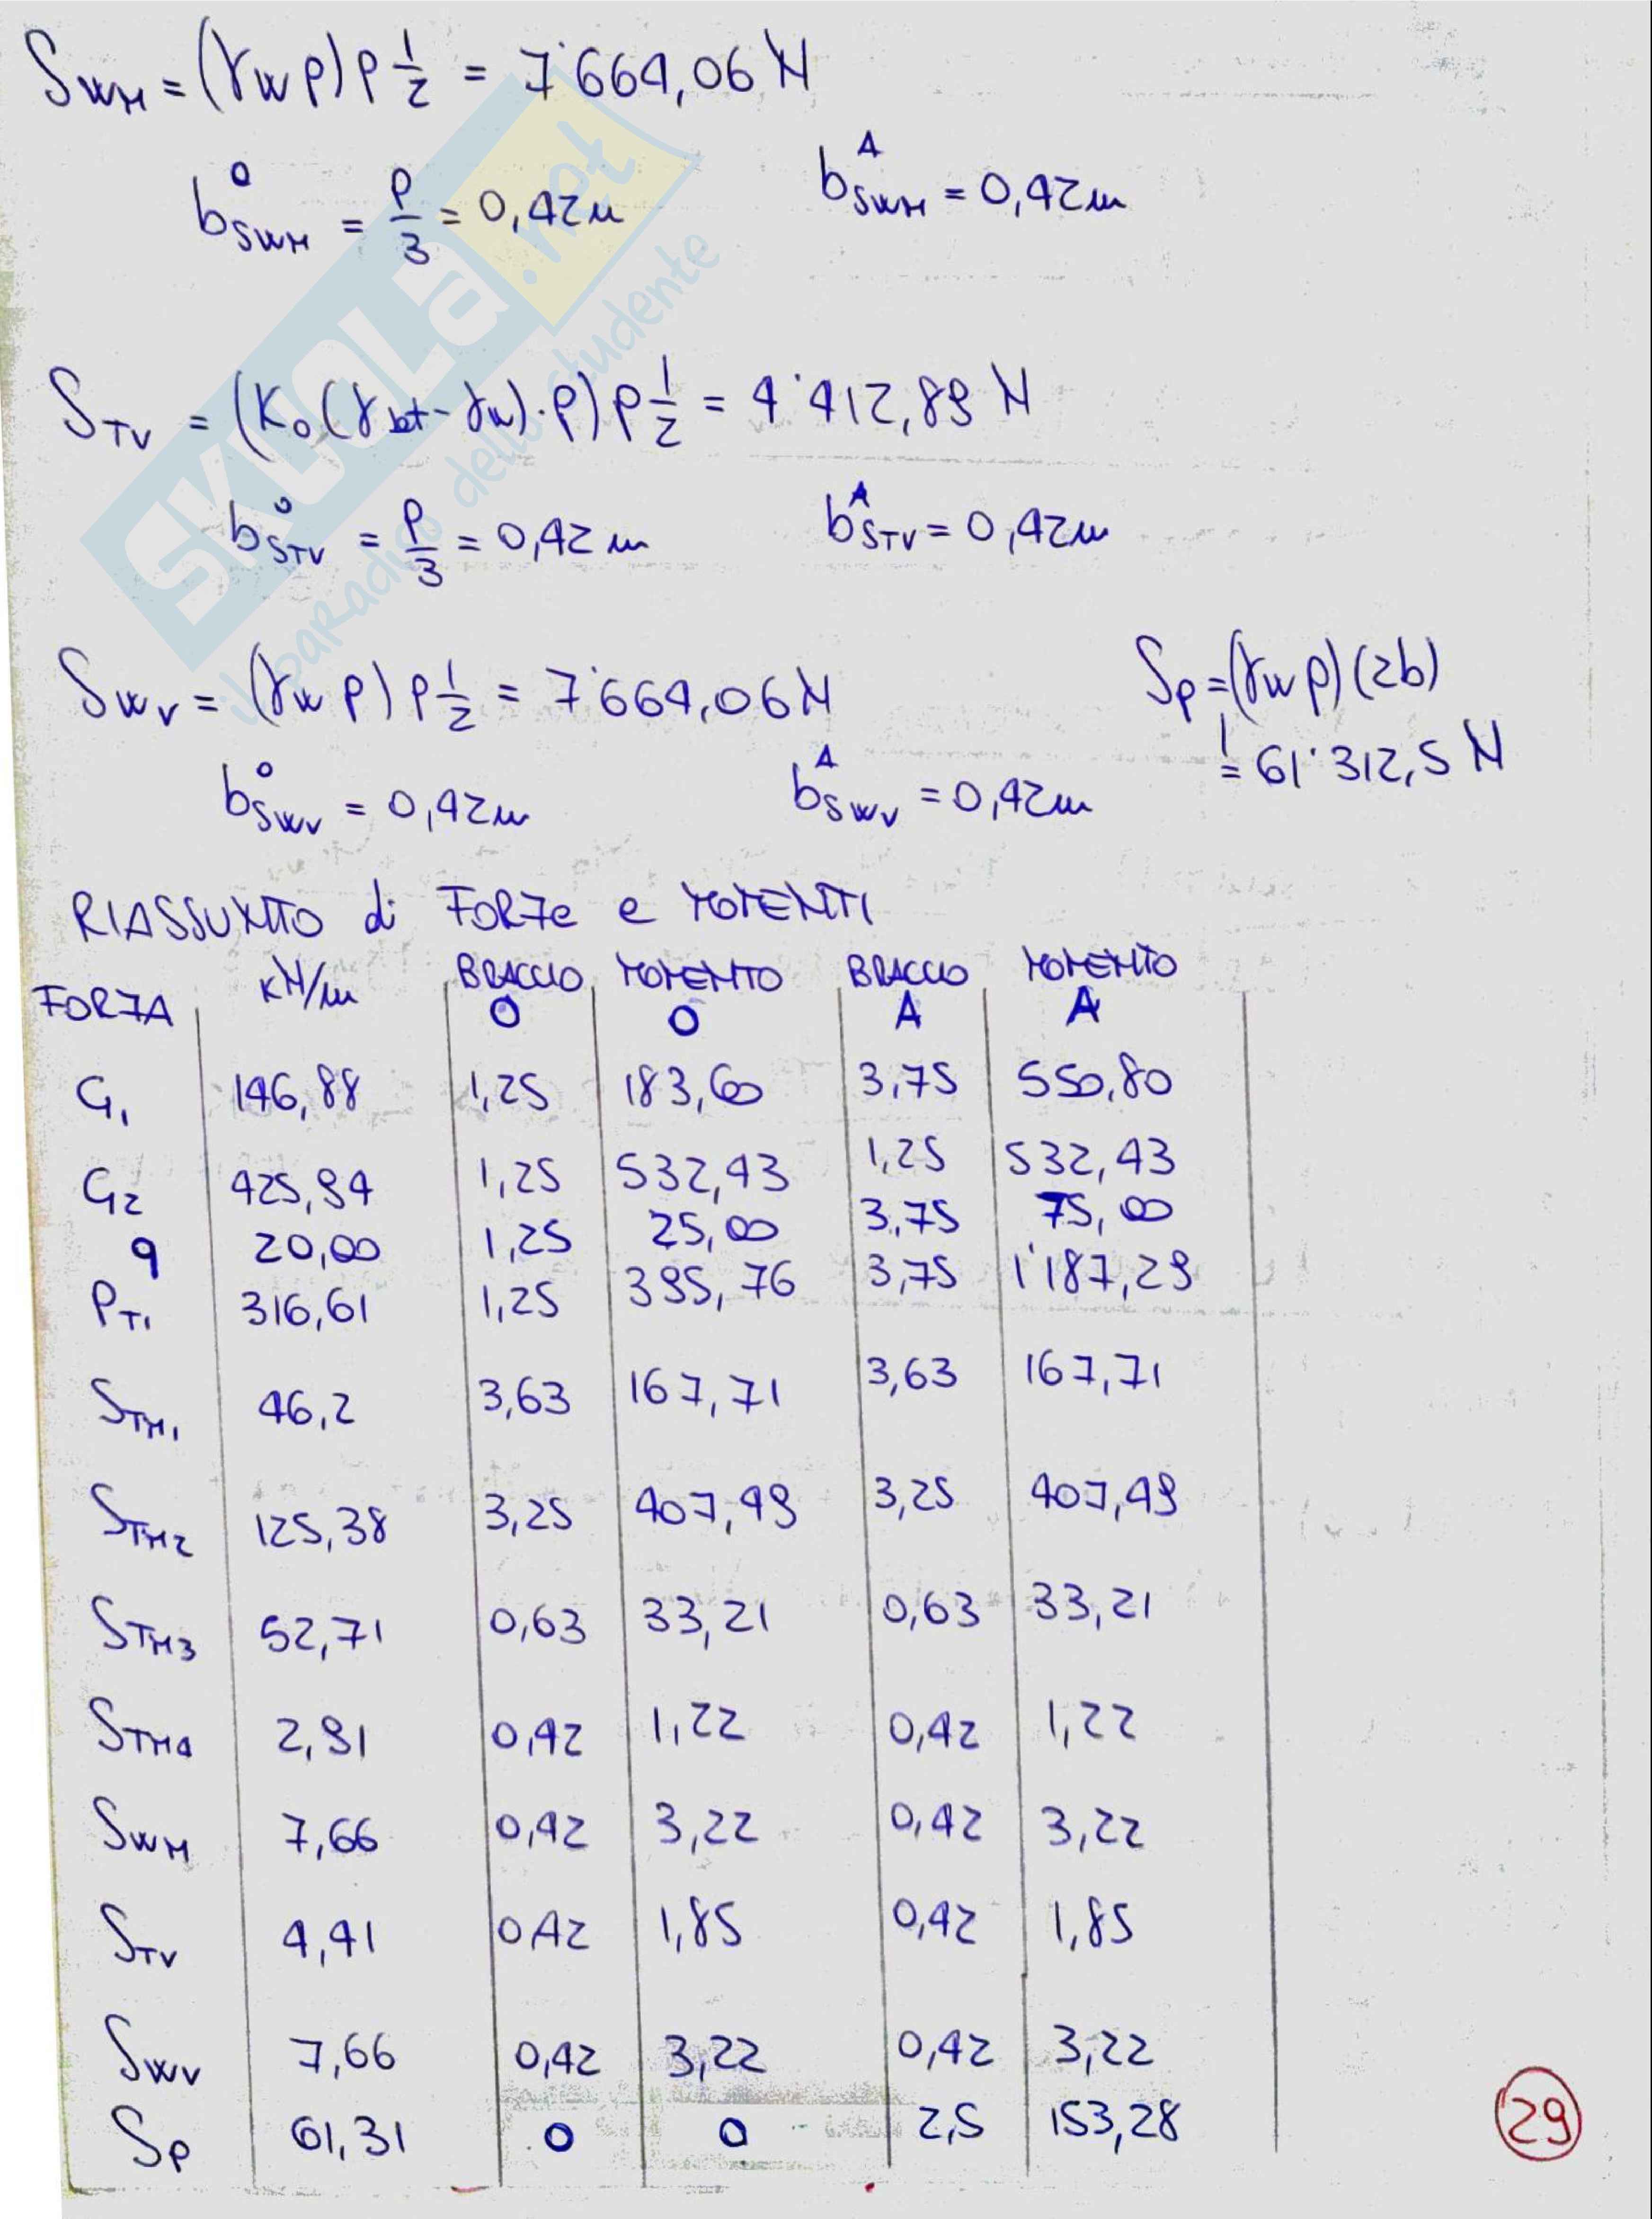 S_WM = (γw p) p 1/2 = 7'664,06 N
b°_SWM = p/3 = 0,42 m b^A_SWM = 0,42 m
SKUOLA.net
il paradiso dello studente
S_TV = (K₀(γsat-γw)·p) p 1/2 = 4'412,89 N
b°_STV = p/3 = 0,42 m b^A_STV = 0,42 m
S_WV = (γw p) p 1/2 = 7'664,06 N S_p = (γw p)(2b)
= 61'312,5 N
b°_SWV = 0,42 m b^A_SWV = 0,42 m
RIASSUNTO di FORZe e MOMENTI
FORZA kN/m BRACCIO O MOMENTO O BRACCIO A MOMENTO A
G₁ 146,88 1,25 183,60 3,75 550,80
G₂ 425,94 1,25 532,43 1,25 532,43
q 20,00 1,25 25,00 3,75 75,00
P_T1 316,61 1,25 395,76 3,75 1'187,29
S_TM1 46,2 3,63 167,71 3,63 167,71
S_TM2 125,38 3,25 407,49 3,25 407,49
S_TM3 52,71 0,63 33,21 0,63 33,21
S_TM4 2,91 0,42 1,22 0,42 1,22
S_WM 7,66 0,42 3,22 0,42 3,22
S_TV 4,41 0,42 1,85 0,42 1,85
S_WV 7,66 0,42 3,22 0,42 3,22
S_p 61,31 0 0 2,5 153,28
29